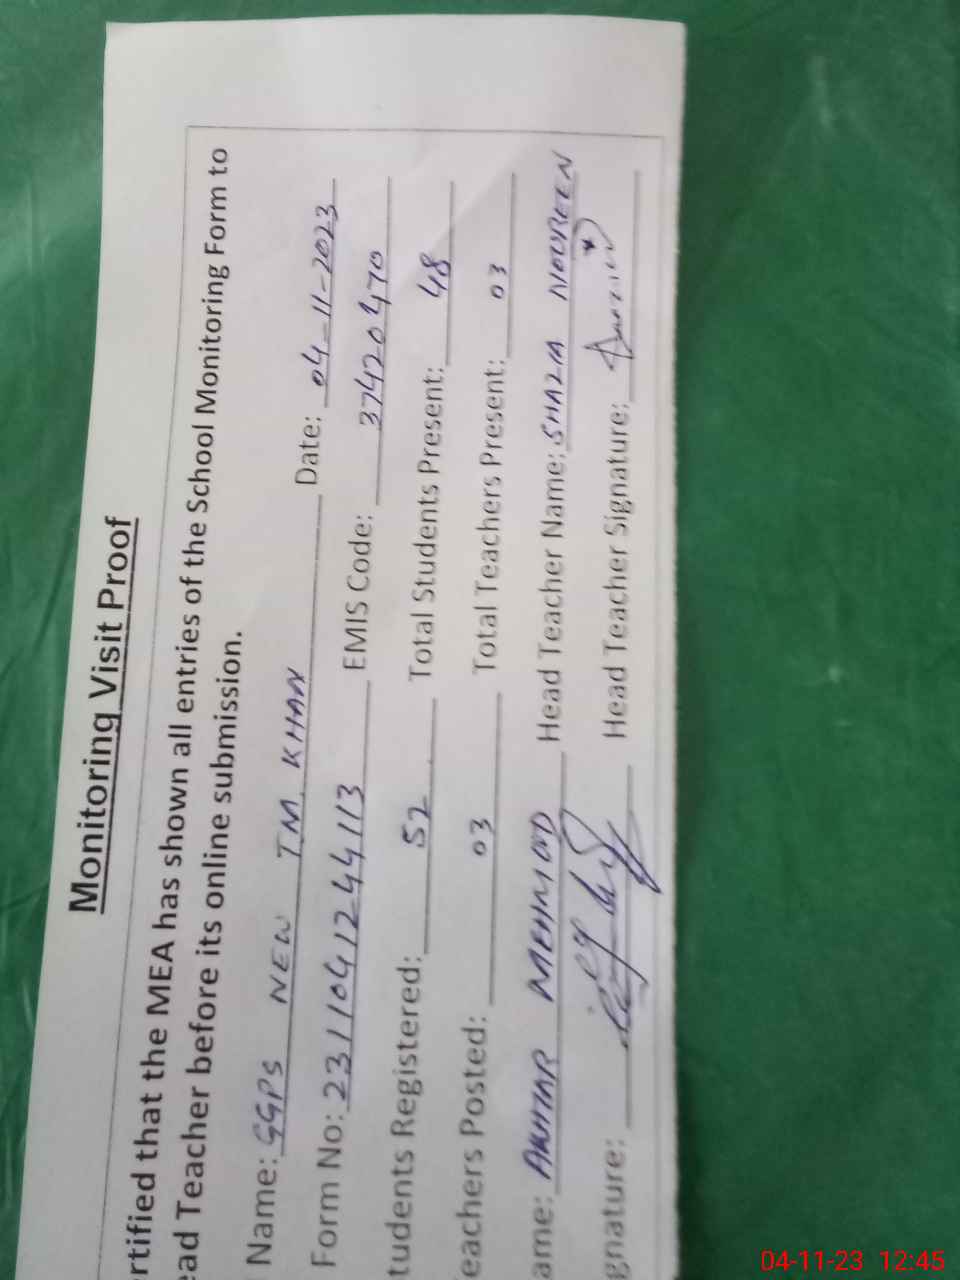 Monitoring Visit Proof
rtified that the MEA has shown all entries of the School Monitoring Form to
ead Teacher before its online submission.
Name: GGPS NEW T.M. KHAN Date: 04-11-2023
Form No: 2311041244113 EMIS Code: 37420470
tudents Registered: 52 Total Students Present: 48
eachers Posted: 03 Total Teachers Present: 03
ame: AKHTAR MEHMOOD Head Teacher Name: SHAZIA NOUREEN
gnature: Head Teacher Signature:
04-11-23 12:45